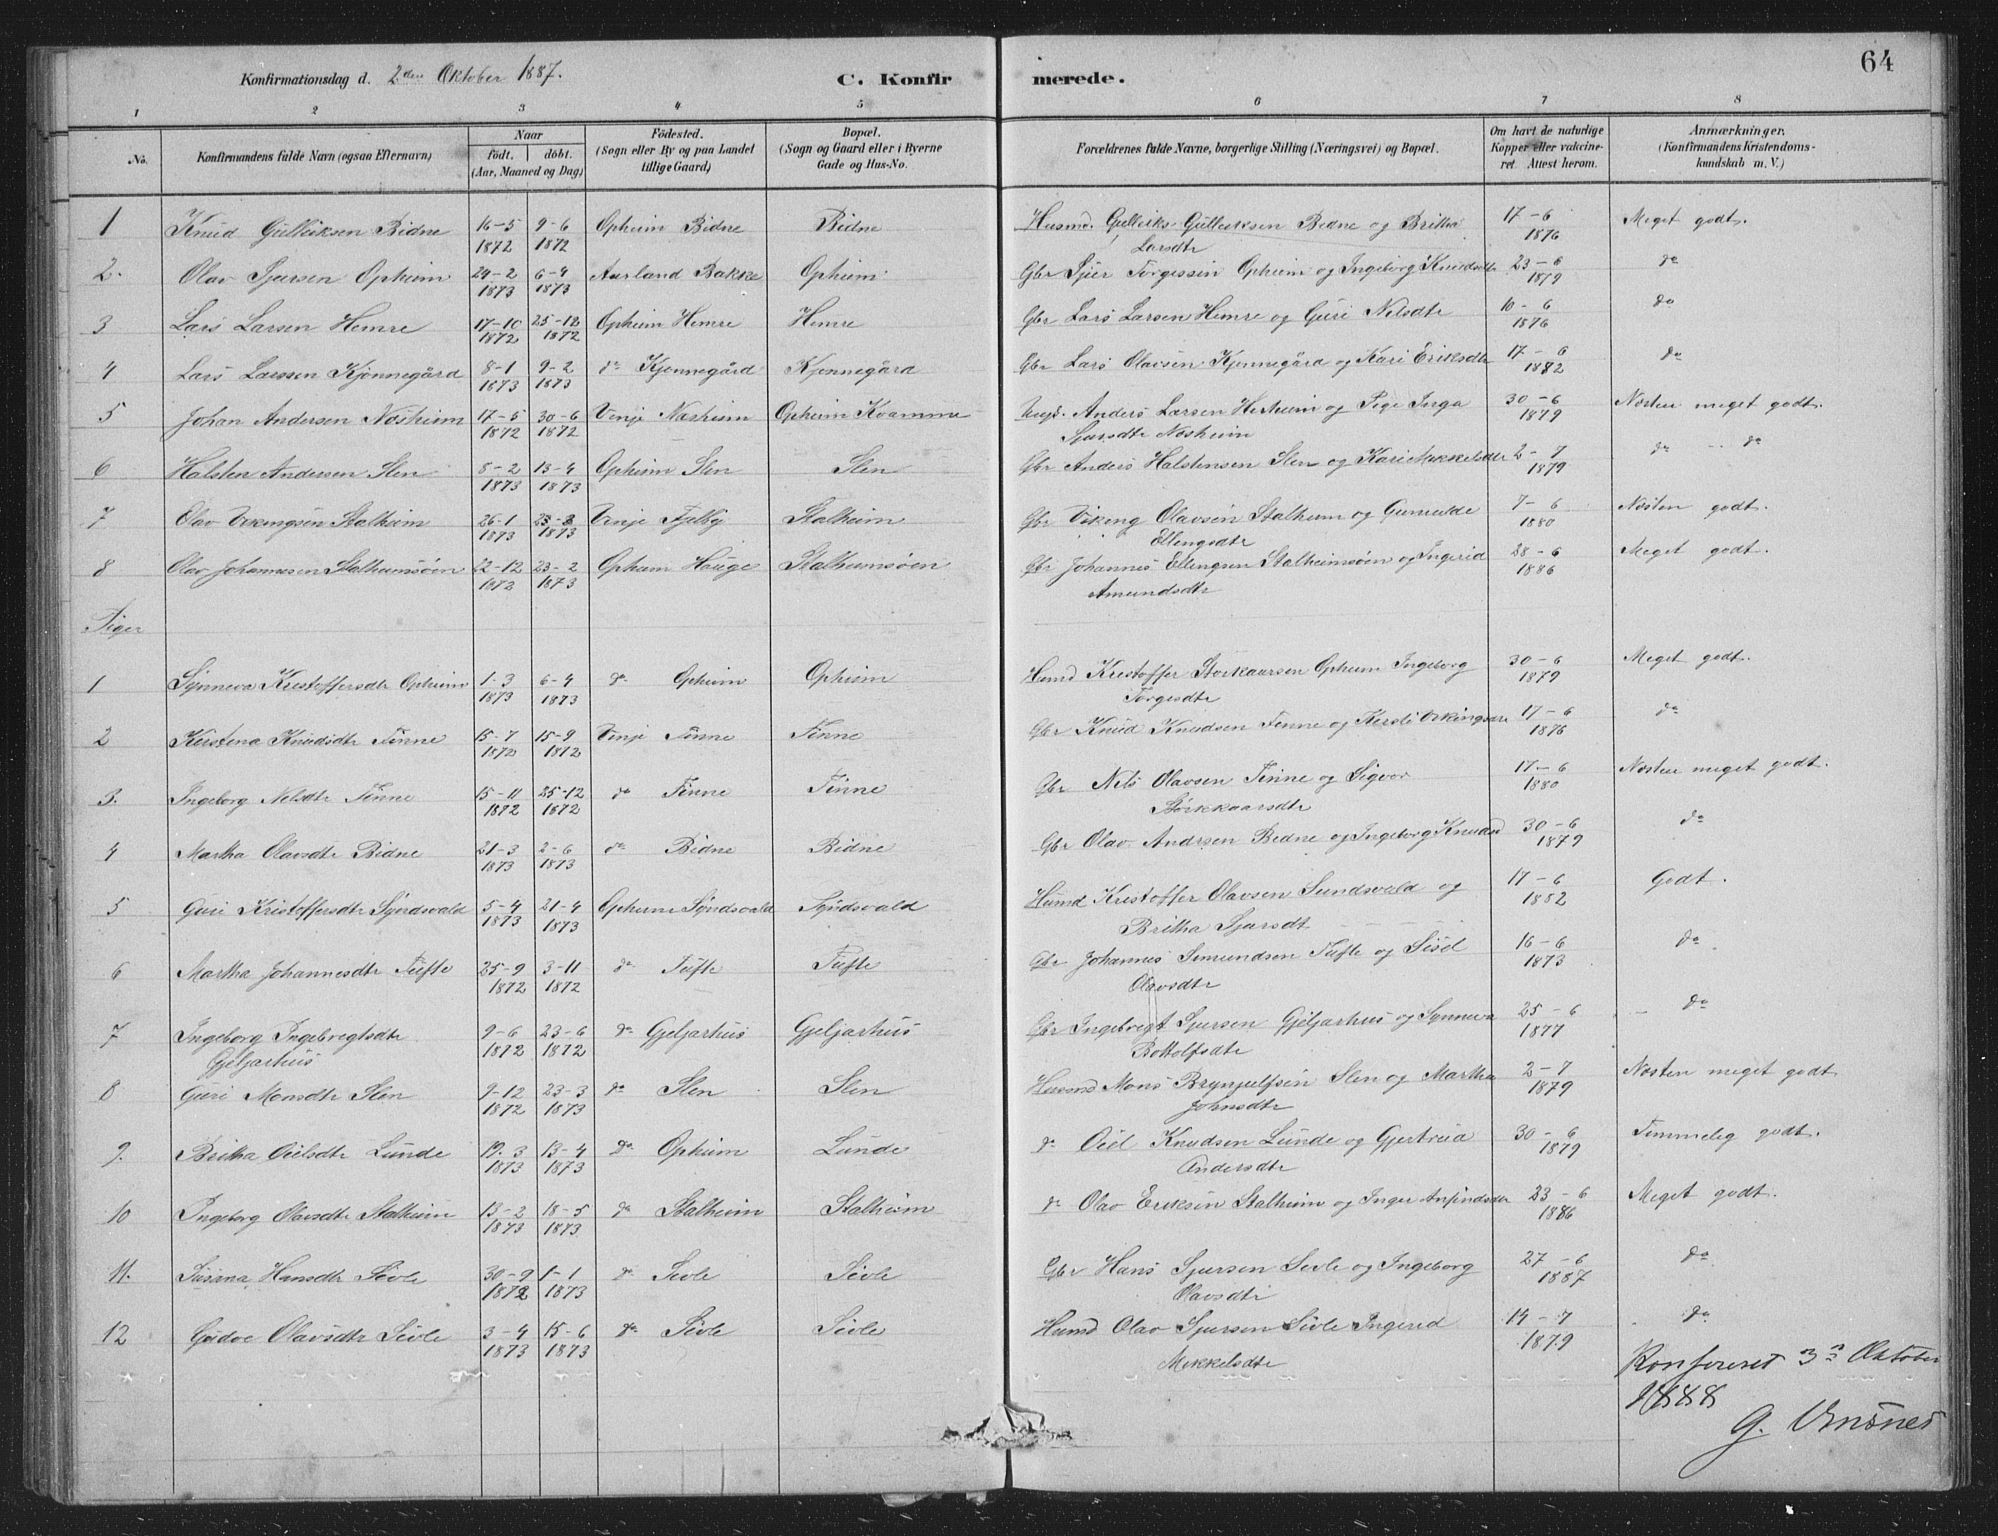 Konfirmationsdag d. 2den Oktober 1887. C. Konfirmerede. 64
1 2 3 4 5 6 7 8
No. Konfirmandens fulde Navn (ogsaa Efternavn) Naar födt. döbt. (Aar, Maaned og Dag) Födested. (Sogn eller By og paa Landet tillige Gaard) Bopæl. (Sogn og Gaard eller i Byerne Gade og Hus-No. Forældrenes fulde Navne, borgerlige Stilling (Næringsvei) og Bopæl. Om havt de naturlige Kopper eller vakcineret Attest herom. Anmærkninger. (Konfirmandens Kristendomskundskab m. V.)
1 Knud Gulleiksen Bidne 16-5 1872 9-6 1872 Opheim Bidne Bidne Husmd. Gulleiks Gulleiksen Bidne og Britha Larsdtr 17-6 1876 Meget godt.
2. Olav Sjursen Opheim 24-2 1873 6-4 1873 Aurland Bakke Opheim Gbr Sjur Torgessen Opheim og Ingeborg Knudsdtr 23-6 1879 do
3 Lars Larsen Hemre 17-10 1872 25-12 1872 Opheim Hemre Hemre Gbr Lars Larsen Hemre og Guri Nilsdtr 10-6 1876 do
4 Lars Larssen Kjønnegård 8-1 1873 9-2 1873 do Kjønnegård Kjønnegård Gbr Lars Olavsen Kjønnegård og Kari Eriksdtr 17-6 1882 do
5 Johan Andersen Næsheim 17-5 1872 30-6 1872 Vinje Næsheim Opheim Kvamme Anders Larsen Herheim og Pige Inga Sjursdtr Næsheim 30-6 1879 Næsten meget godt.
6 Halsten Andersen Slen 8-2 1873 13-4 1873 Opheim Slen Slen Gbr Anders Halstensen Slen og Kari Mikkelsdtr 2-7 1879 do - do
7 Olav Vikingsen Stalheim 26-1 1873 23-3 1873 Vinje Fjelby Stalheim Gbr Viking Olavsen Stalheim og Gunnilde Ellingsdtr 7-6 1880 Næsten godt.
8 Olav Johannesen Stalheimsøen 22-12 1872 23-2 1873 Opheim Hauge Stalheimsøen Gbr Johannes Ellingsen Stalheimsøen og Ingerid Amundsdtr 28-6 1886 Meget godt.
Piger
1 Synneva Kristoffersdtr Opheim 1-3 1873 6-4 1873 do Opheim Opheim Husmd Kristoffer Storkaarsen Opheim Ingeborg Torgesdtr 30-6 1879 Meget godt.
2 Kirstena Knudsdtr Finne 15-7 1872 15-9 1872 Vinje Finne Finne Gbr Knud Knudsen Finne og Kirsti Vikingsdtr 17-6 1876 do
3. Ingeborg Nilsdtr Finne 15-11 1872 25-12 1872 do Finne Finne Gbr Nils Olavsen Finne og Sigvor Storkkaarsdtr 17-6 1880 Næsten meget godt.
4 Martha Olavsdtr Bidne 21-3 1873 2-6 1873 do Bidne Bidne Gbr Olav Andrsen Bidne og Ingeborg Knudsd 30-6 1879 do
5 Guri Kristoffersdtr Syndsvald 5-4 1873 21-4 1873 Opheim Syndsvald Syndsvald Husmd Kristoffer Olavsen Sundsvald og Britha Sjursdt 17-6 1882 Godt.
6 Martha Johannesdtr Tufte 25-9 1872 3-11 1872 do Tufte Tufte Gbr Johannes Simundsen Tufte og Sisel Olavsdtr 16-6 1873 do
7 Ingeborg Ingebregtsdtr Gjeljarhus 9-6 1872 23-6 1872 do Gjeljarhus Gjeljarhus Gbr Ingebregt Sjursen Gjeljarhus og Synneva Bottolfsdtr 25-6 1877 do
8 Guri Monsdtr Slen 9-12 1872 23-3 1873 do Slen Slen Husmd Mons Brynjulfsen Slen og Martha Johnsdtr 2-7 1879 Næsten meget godt
9. Britha Oilsdtr Lunde 19-3 1873 13-4 1873 do Opheim Lunde do Oil Knudsen Lunde og Gjertrud Andersdtr 30-6 1879 Temmelig godt.
10 Ingeborg Olavsdtr Stalheim 13-2 1873 18-5 1873 do Stalheim Stalheim do Olav Eriksen Stalheim og Inger Anfindsdtr 23-6 1886 Meget godt.
11. Susina Hansdtr Sivle 30-9 1872 1-1 1873 do Sivle Sivle Gbr Hans Sjursen Sivle og Ingeborg Olavsdtr 27-6 1887 do
12 Gudve Olavsdtr Sivle 3-4 1873 15-6 1873 do Sivle Sivle Husmd Olav Sjursen Sivle Ingerid Mikkelsdtr 14-7 1879 do
Konfereret 3n Oktober
1888
G.